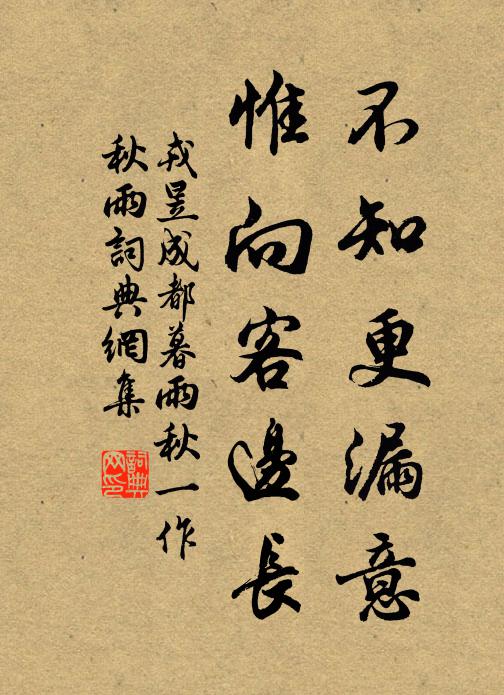 不知更漏意
惟向客邊長
戎昱成都暮雨秋一作
秋雨詞典網集
詞典網印